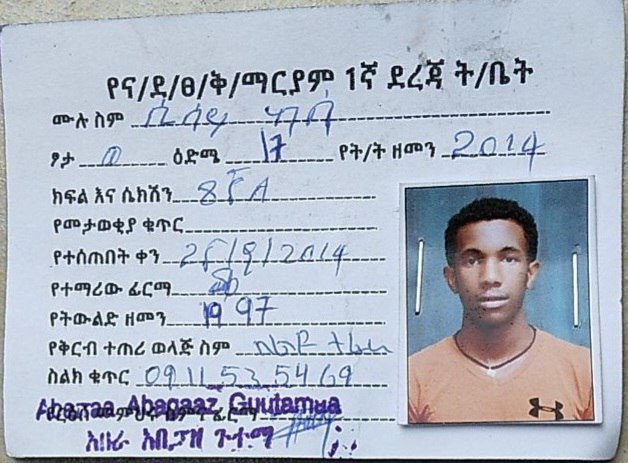 የና/ደ/ፀ/ቅ/ማርያም 1ኛ ደረጃ ት/ቤት
ሙሉ ስም
ፆታ ወ ዕድሜ 17 የት/ት ዘመን 2014
ክፍል እና ሴክሽን 8ኛ A
የመታወቂያ ቁጥር
የተሰጠበት ቀን 25/9/2014
የተማሪው ፊርማ
የትውልድ ዘመን 1997
የቅርብ ተጠሪ ወላጅ ስም
ስልክ ቁጥር 0911535469
Abaraa Abagaaz Guutamua
አበራ አቢጋዝ ጉተማ